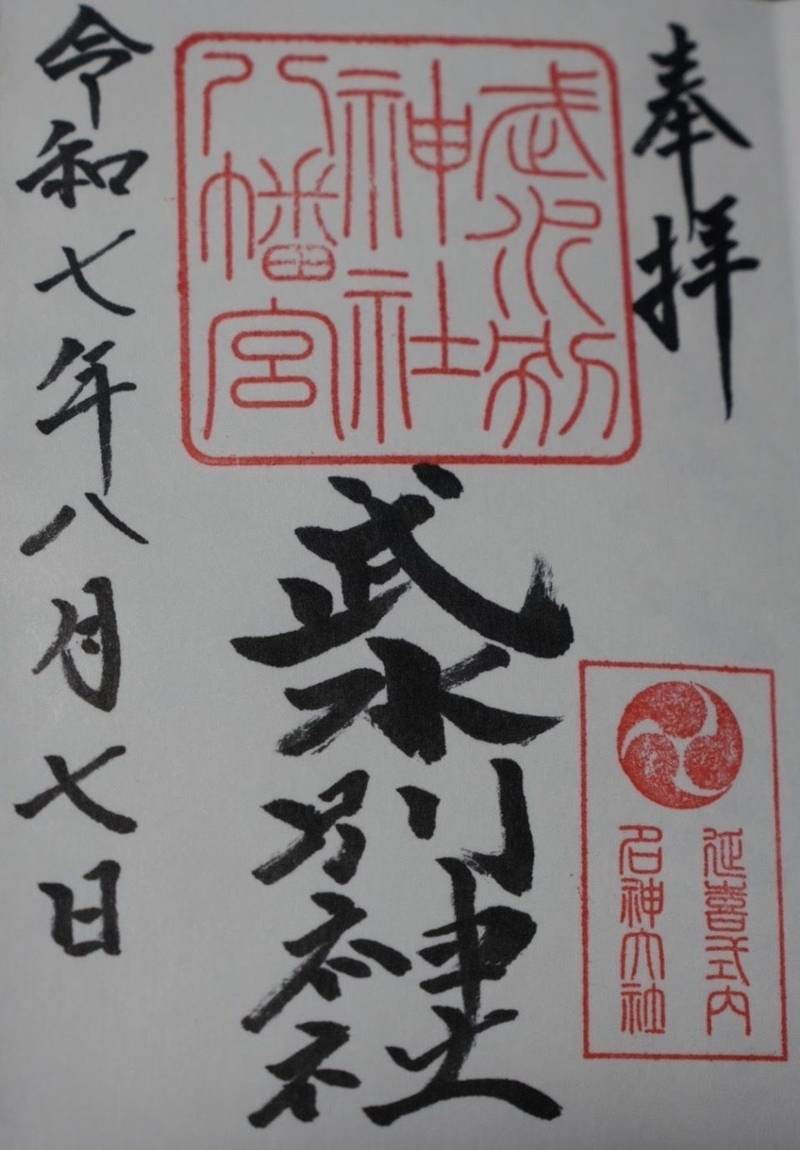 奉拝
武水別
神社
八幡宮
武水別神社
延喜式内
名神大社
令和七年八月七日